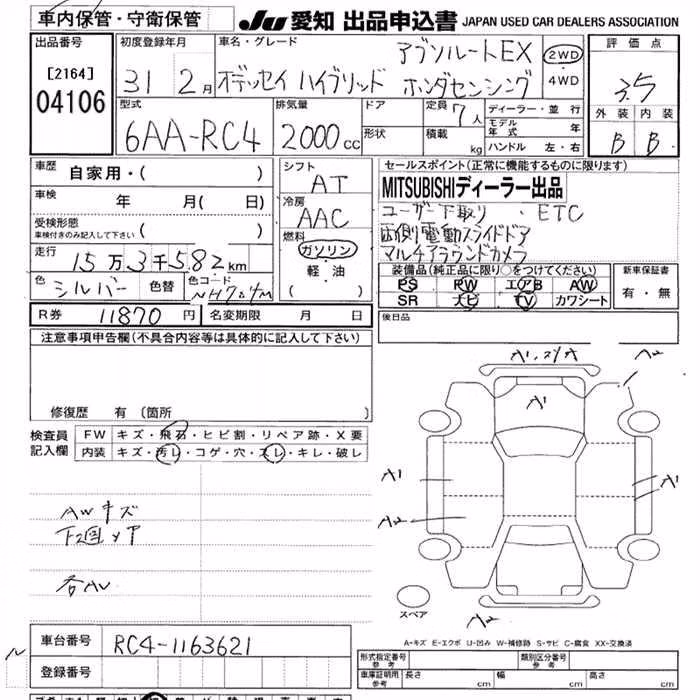 車内保管・守衛保管
JU 愛知 出品申込書 JAPAN USED CAR DEALERS ASSOCIATION
出品番号
[2164]
04106
初度登録年月
31 2月
車名・グレード
アブソルートEX
オデッセイ ハイブリッド ホンダセンシング
2WD
4WD
評価点
3.5
外装 内装
B B
型式
6AA-RC4
排気量
2000cc
ドア
形状
定員 7人
積載 kg
ディーラー・並行
モデル年式 年
ハンドル 左・右
車歴 自家用・( )
車検 年 月( 日)
受検形態 ( )
車検付きのみ記入して下さい
走行 15万3千582km
色 シルバー 色替 色コード NH704M
シフト
AT
冷房
AAC
燃料
ガソリン
軽・油
( )
セールスポイント(正常に機能するものに限ります)
MITSUBISHIディーラー出品
ユーザー下取り ・ETC
両側電動スライドドア
マルチアラウンドカメラ
装備品(純正品に限り○をつけてください)
PS PW エアB AW
SR ナビ TV カワシート
新車保証書
有・無
R券 11870円 名変期限 月 日
後日品
注意事項申告欄(不具合内容等は具体的に記入して下さい)
修復歴 有 (箇所 )
検査員記入欄
FW キズ・飛石・ヒビ割・リペア跡・X要
内装 キズ・汚レ・コゲ・穴・スレ・キレ・破レ
AWキズ
A1
A2
A1
A1
A1
A2
A2
スペア
A-キズ E-エクボ U-凹み W-補修跡 S-サビ C-腐食 XX-交換済
車台番号 RC4-1163621
登録番号
形式指定番号 参考
類別区分番号 参考
車庫証明用 参考 長さ cm 幅 cm 高さ cm